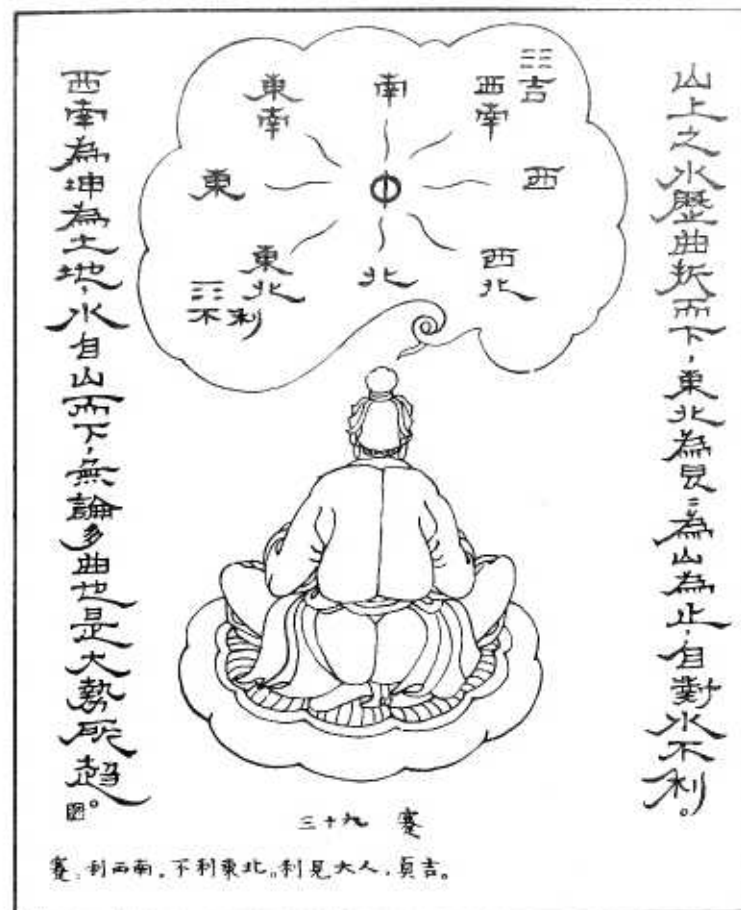 山上之水歷曲折而下，東北為艮〻為山為止，自對水不利。
☷吉
西南
南
東南
西
東
西北
北
東北
☶
不利
西南為坤為土地，水自山而下，無論多曲也是大勢所趨。
三十九 蹇
蹇：利西南，不利東北。利見大人，貞吉。